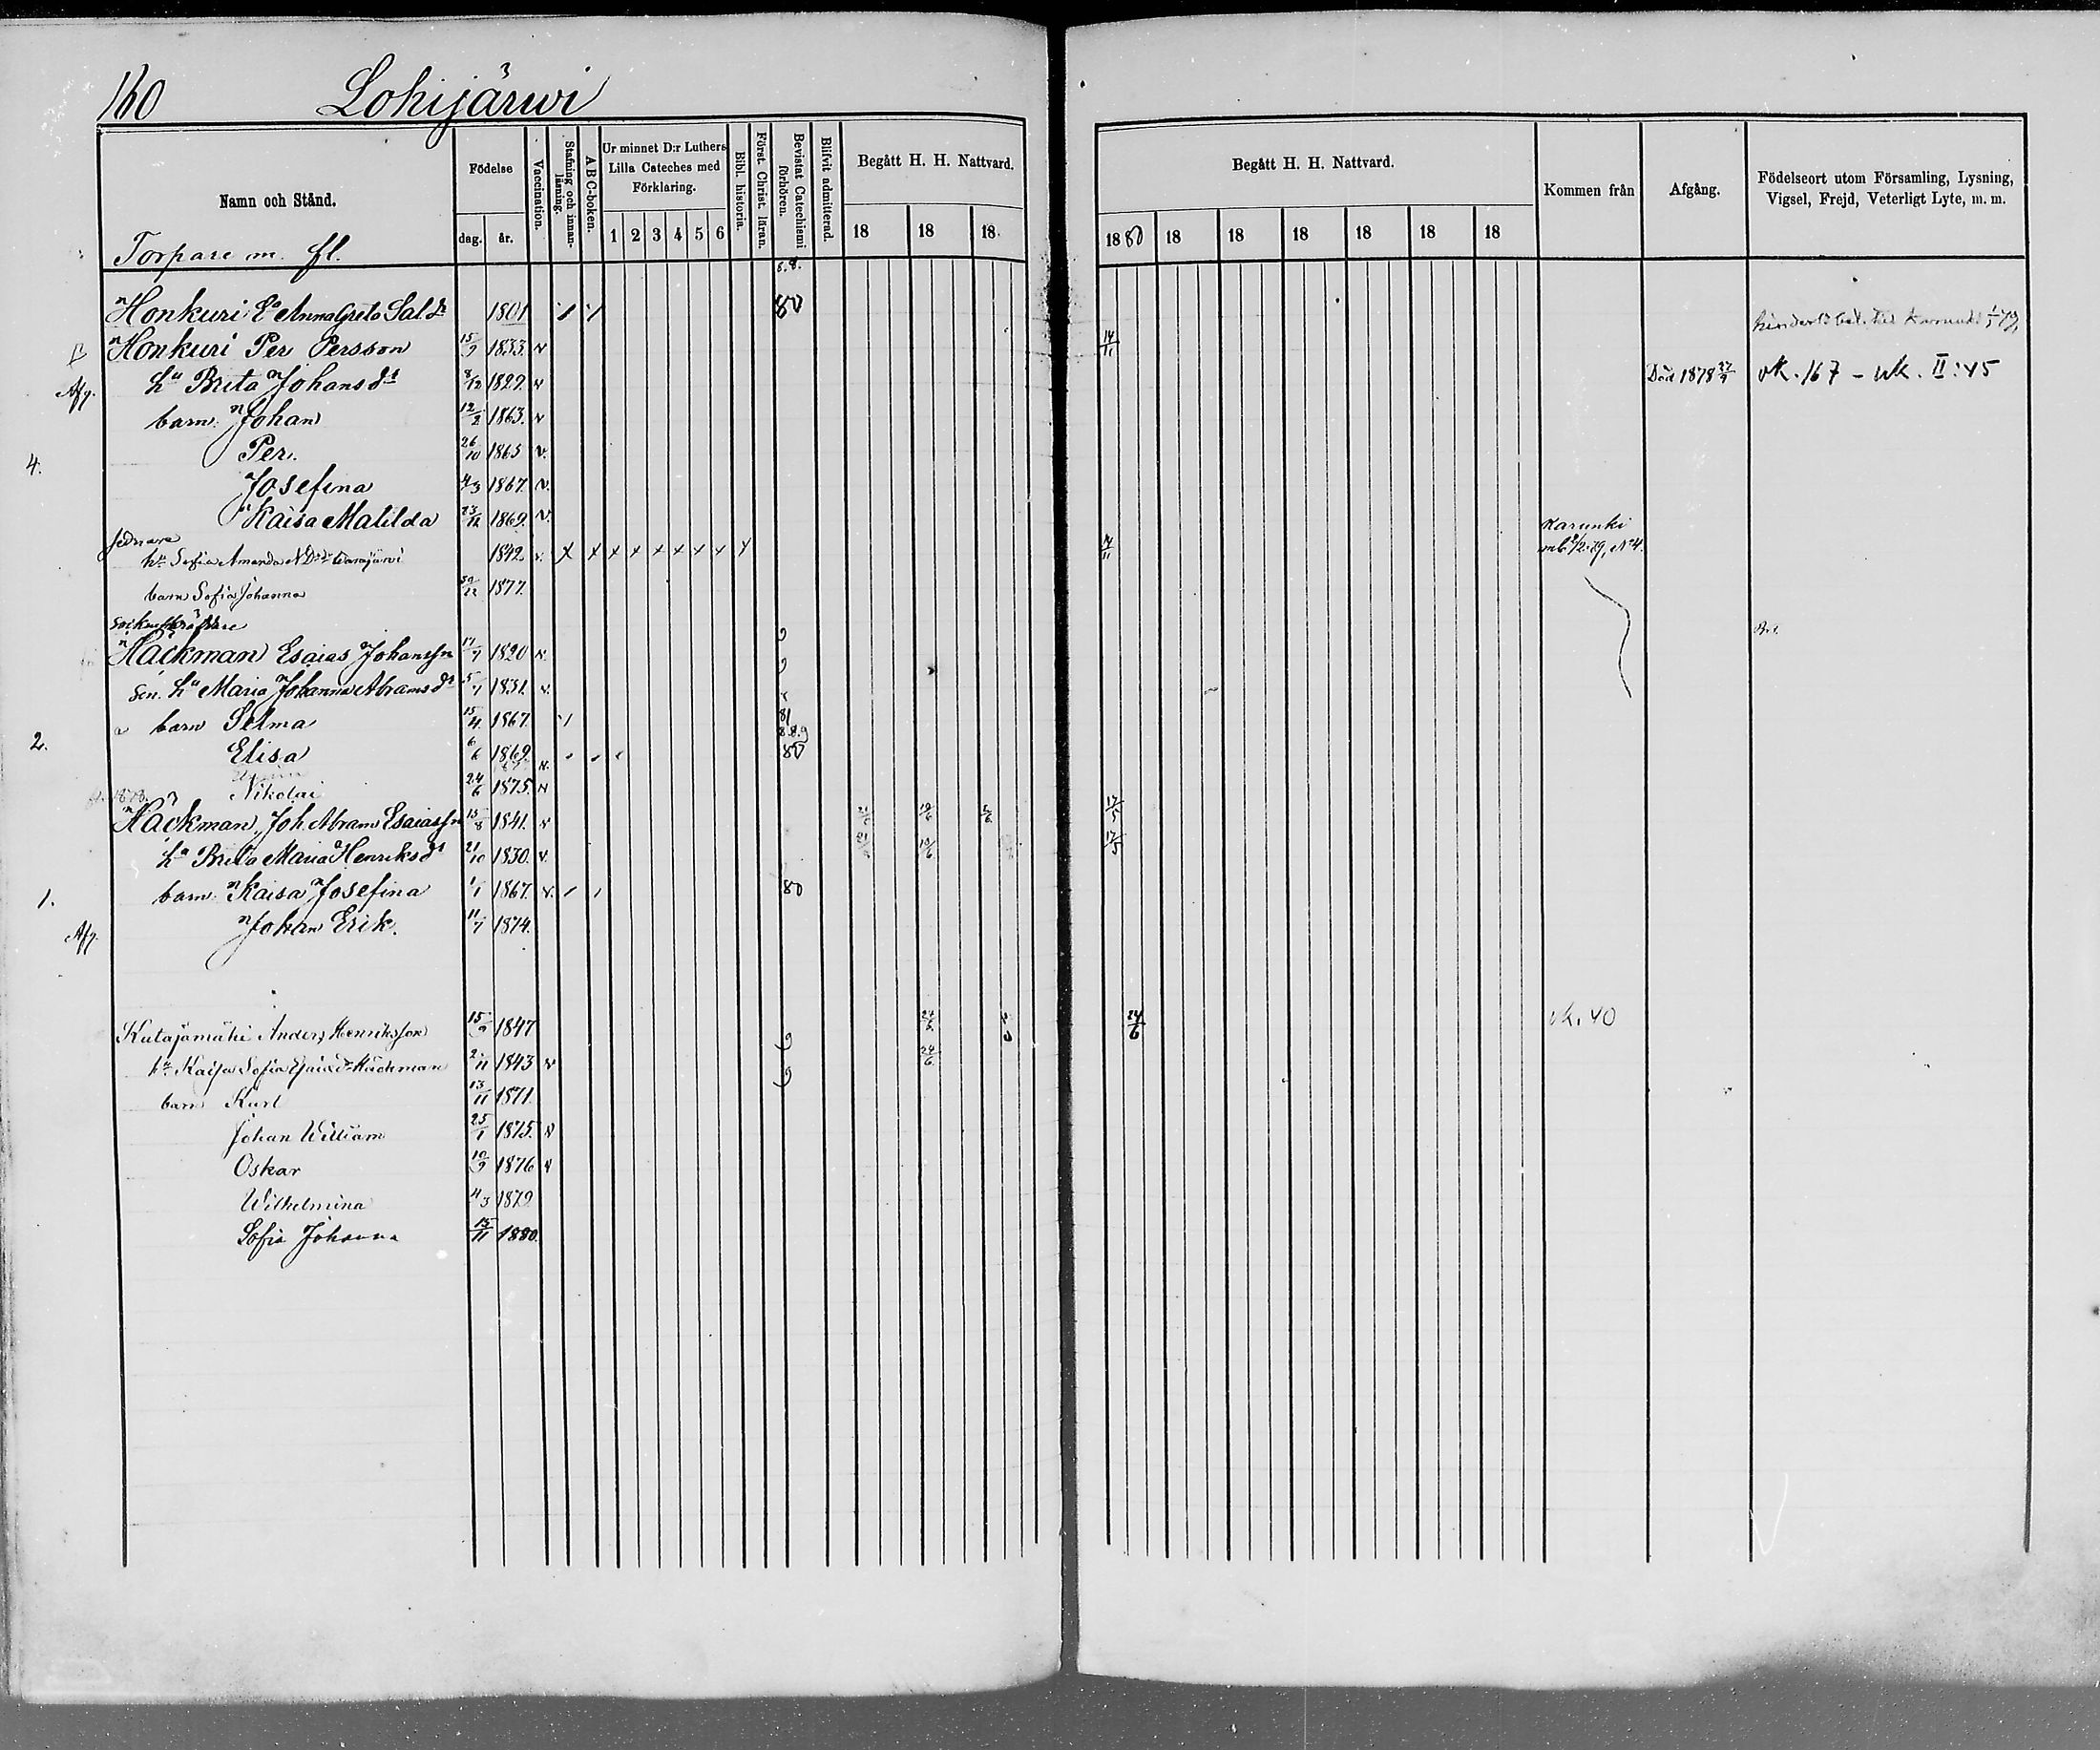 160 Lohijärwi
Namn och Stånd.
Födelse
dag. år.
Vaccination.
Stafning och innanläsning.
ABC-boken.
Ur minnet D:r Luthers Lilla Cateches med Förklaring.
1 2 3 4 5 6
Bibl. historia.
Först. Christ. läran.
Bevistat Catechismi förhören.
Blifvit admitterad.
Begått H. H. Nattvard.
18 18 18
Begått H. H. Nattvard.
1880 18 18 18 18 18 18
Kommen från
Afgång.
Födelseort utom Församling, Lysning, Vigsel, Frejd, Veterligt Lyte, m. m.
Torpare m. fl.
8.8.
Honkuri Anna Greta Sal.dr 1801 80
Honkuri Per Persson 15/9 1833. v 14/11
Afg. hu Brita Johansdr 8/12 1829. v Död 1878 27/9 vk. 167 - wk. II:45
barn Johan 12/2 1863. v
4. Per. 26/10 1865 v.
Josefina 4/3 1867. v.
Kaisa Matilda 23/12 1869. v.
sednare Karunki
hu Sofia Amanda 1842. v. x x x x x x x x x mb 2/2 79, No 4.
barn Sofia Johanna 1877.
Häckman Esaias Johanssn 17/7 1820 v.
sen. hu Maria Johanna Abramsdr 5/1 1831. v.
barn Selma 15/4 1867. 81
8.8.9
2. Elisa 6/6 1869. 80
Nikolai 24/6 1875. v
Häckman, Joh. Abram Esaiassn 15/8 1841. v 17/5
ha Brita Maria Henriksdr 21/10 1830. v. 17/5
1. barn Kaisa Josefina 1/1 1867. v. 80
Afg. Johan Erik. 11/7 1874.
Kutajamäki Anders Henriksson 15/9 1847 24/6 24/6 vk. 40
hu Kaisa Sofia Esaiedr Häckman 2/11 1843 v 24/6
barn Karl 13/11 1871.
Johan William 25/1 1875. v
Oskar 10/9 1876 v
Wilhelmina 11/3 1879
Sofia Johanna 15/11 1880.